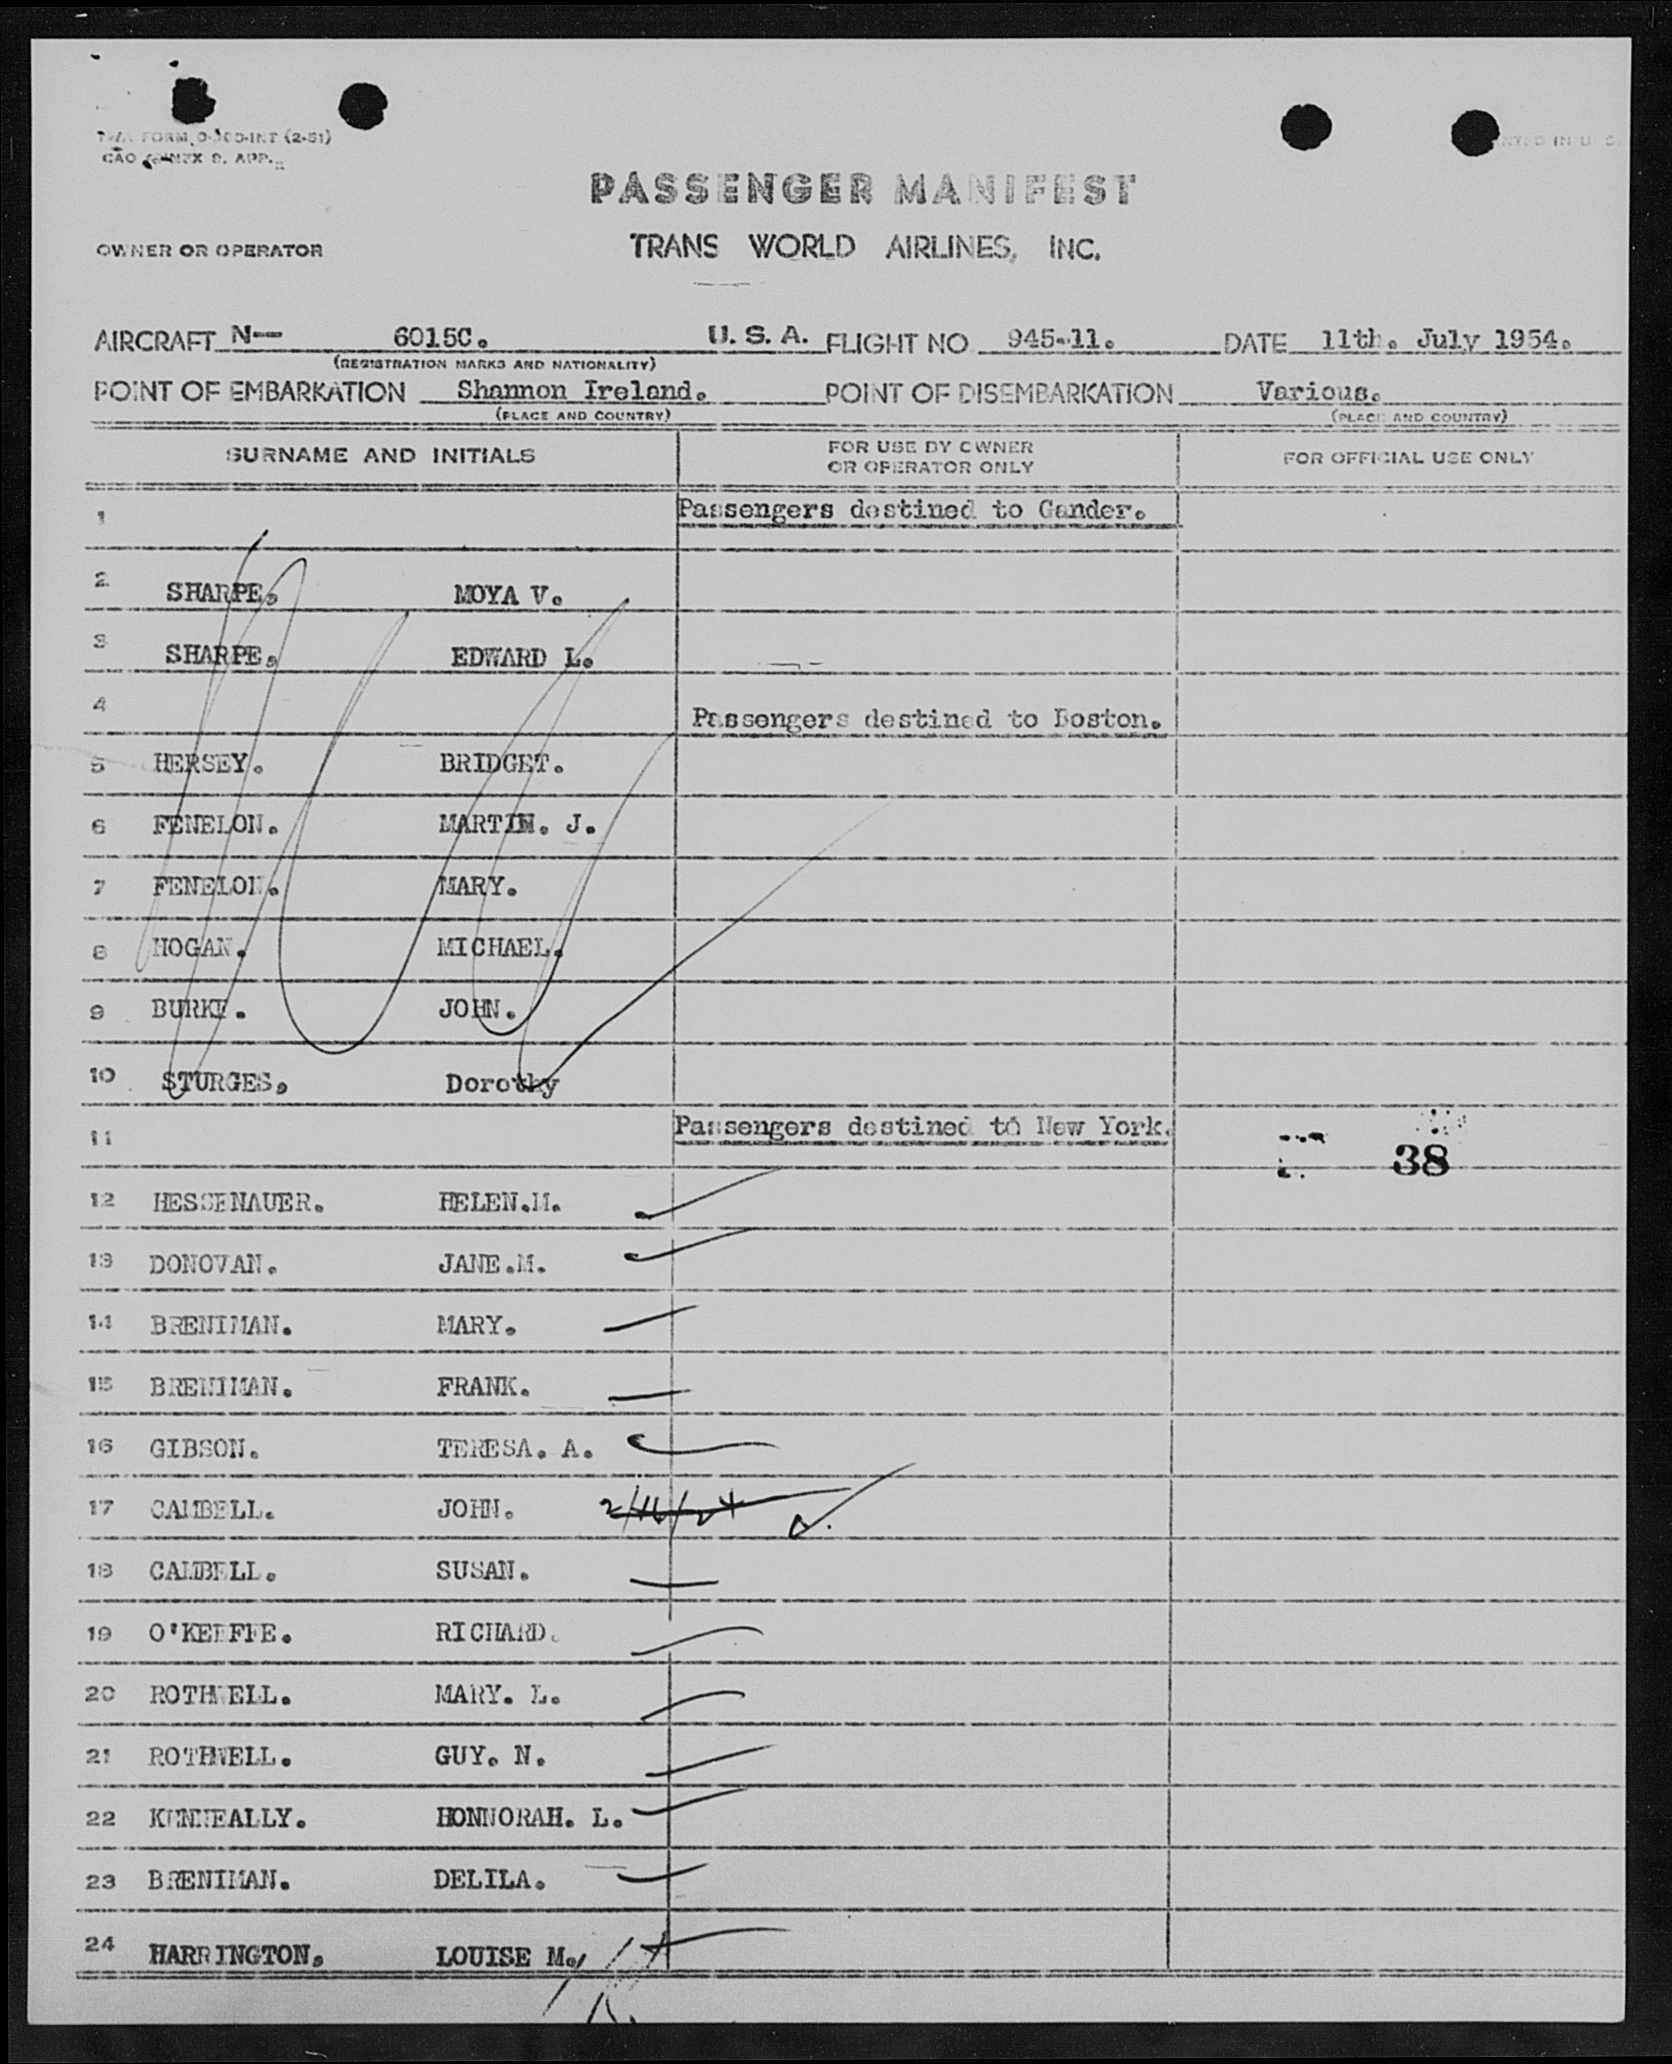 TWA FORM O-300-INT (2-51)
CAO ANNEX 9, APP.
PRINTED IN U. S.
PASSENGER MANIFEST
OWNER OR OPERATOR TRANS WORLD AIRLINES, INC.
AIRCRAFT N- 6015C. U.S.A. FLIGHT NO 945-11. DATE 11th. July 1954.
(REGISTRATION MARKS AND NATIONALITY)
POINT OF EMBARKATION Shannon Ireland. POINT OF DISEMBARKATION Various.
(PLACE AND COUNTRY) (PLACE AND COUNTRY)
SURNAME AND INITIALS FOR USE BY OWNER OR OPERATOR ONLY FOR OFFICIAL USE ONLY
1 Passengers destined to Gander.
2 SHARPE, MOYA V.
3 SHARPE, EDWARD L.
4 Passengers destined to Boston.
5 HERSEY. BRIDGET.
6 FENELON. MARTIN. J.
7 FENELON. MARY.
8 HOGAN. MICHAEL.
9 BURKE. JOHN.
10 STURGES, Dorothy
11 Passengers destined to New York.
38
12 HESSENAUER. HELEN.M.
13 DONOVAN. JANE.M.
14 BRENIMAN. MARY.
15 BRENIMAN. FRANK.
16 GIBSON. TERESA. A.
17 CAMBELL. JOHN.
18 CAMBELL. SUSAN.
19 O'KEEFFE. RICHARD.
20 ROTHWELL. MARY. L.
21 ROTHWELL. GUY. N.
22 KENNEALLY. HONNORAH. L.
23 BRENIMAN. DELILA.
24 HARRINGTON, LOUISE M.